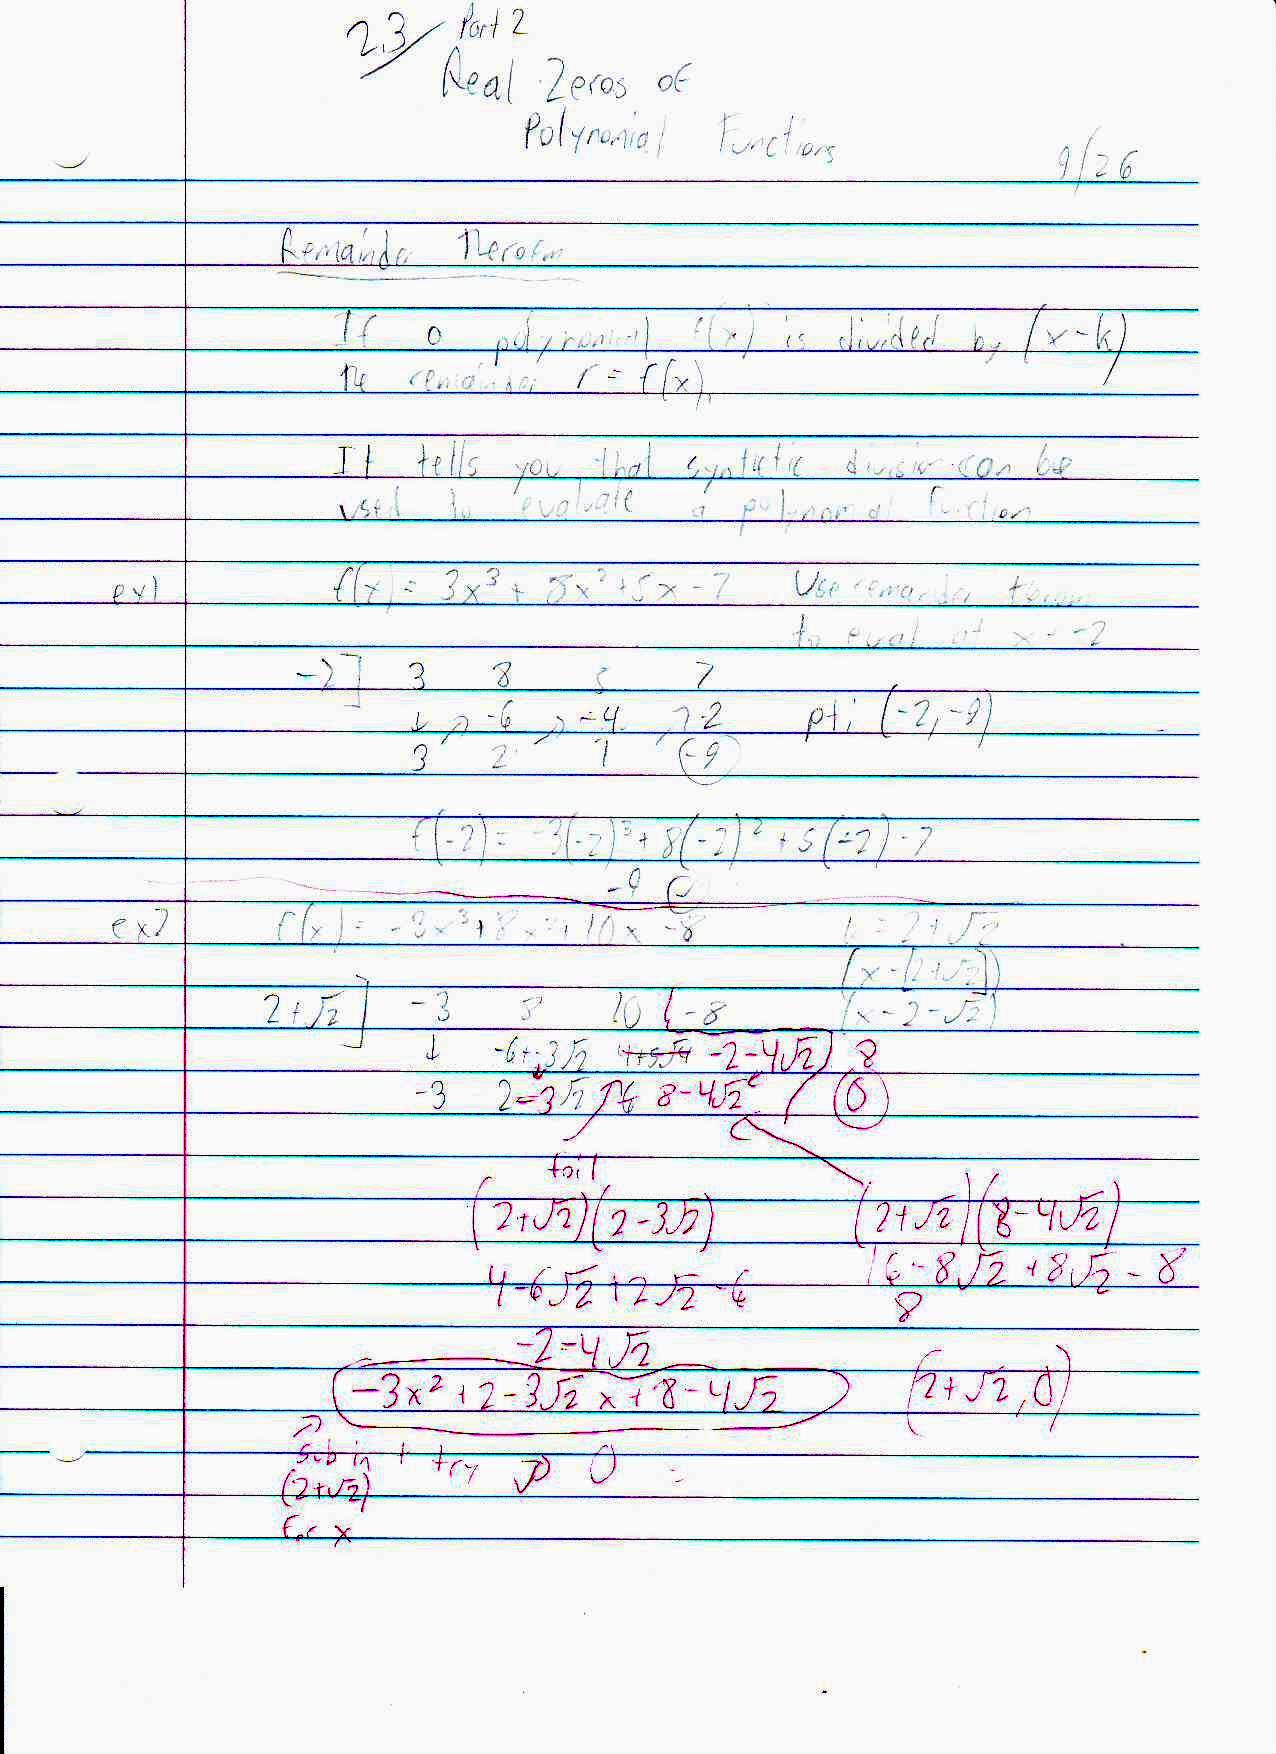 2.3 Part 2
Real Zeros of
Polynomial Functions
9/26
Remainder Theroem
If a polynomial f(x) is divided by (x-k)
the remainder r = f(x).
It tells you that syntetic division can be
used to evaluate a polynomial function
ex1 f(x) = 3x³ + 8x² + 5x - 7 Use remander
to eval at x = -2
-2] 3 8 5 7
↓ -6 -4 -2 pt: (-2, -9)
3 2 1 -9
f(-2) = -3(-2)³ + 8(-2)² + 5(-2) - 7
-9
ex2 f(x) = -3x³ + 8x² + 10x - 8 k = 2+√2
(x-[2+√2])
2+√2] -3 8 10 -8 (x-2-√2)
↓ -6+-3√2 -2-4√2 8
-3 2-3√2 8-4√2 0
foil
(2+√2)(2-3√2) (2+√2)(8-4√2)
4-6√2+2√2-6 16-8√2+8√2-8
8
-2-4√2
-3x²+2-3√2 x+8-4√2 (2+√2, 0)
sub in + try → 0
(2+√2)
for x